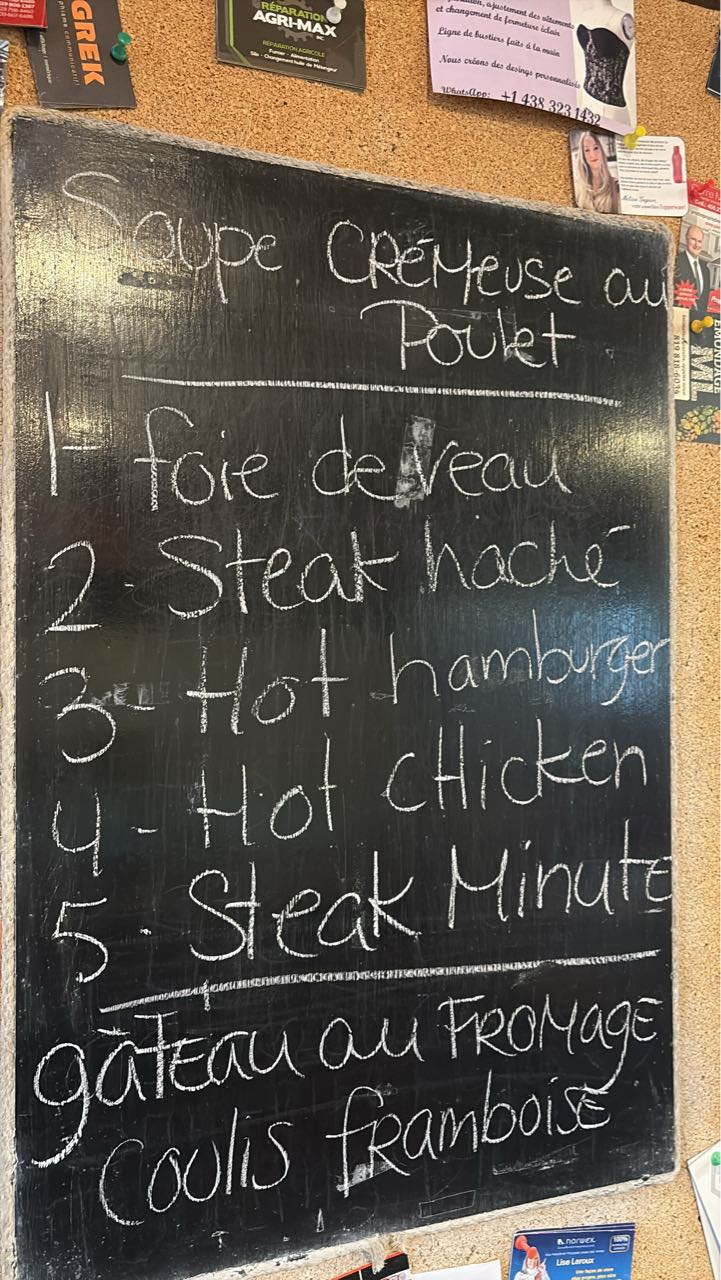 GREK
RÉPARATION
AGRI-MAX
INC.
RÉPARATION AGRICOLE
Fumier - Alimentation
Silo - Changement huile de Mélangeur
ajustement des vêtements
et changement de fermeture éclair
Ligne de bustiers faits à la main
Nous créons des desings personnalisés
WhatsApp: +1 438 323 1432
Soupe CRÉMEUSE au
Poulet
1- foie de veau
2- Steak haché
3- Hot hamburger
4- Hot CHicken
5- Steak Minute
gâTEau au FROMagE
Coulis fRamboisE
norwex
100%
Lise Leroux